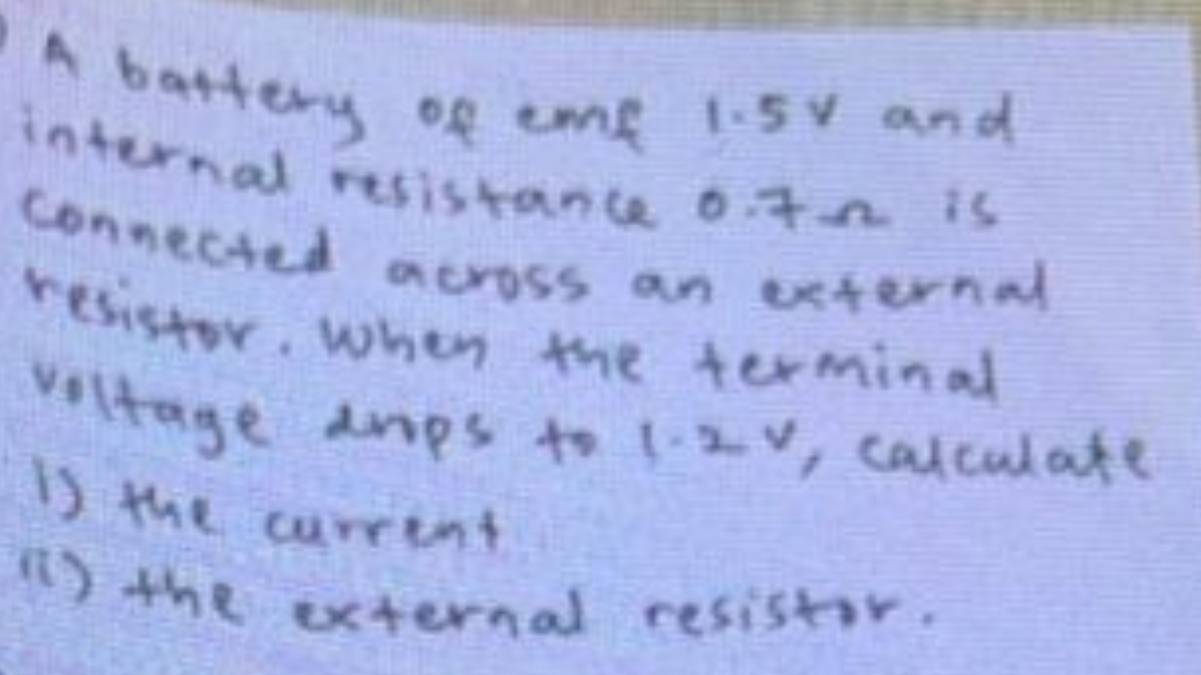 A battery of emf 1.5V and
internal resistance 0.7Ω is
connected across an external
resistor. When the terminal
voltage drops to 1.2V, calculate
i) the current
ii) the external resistor.